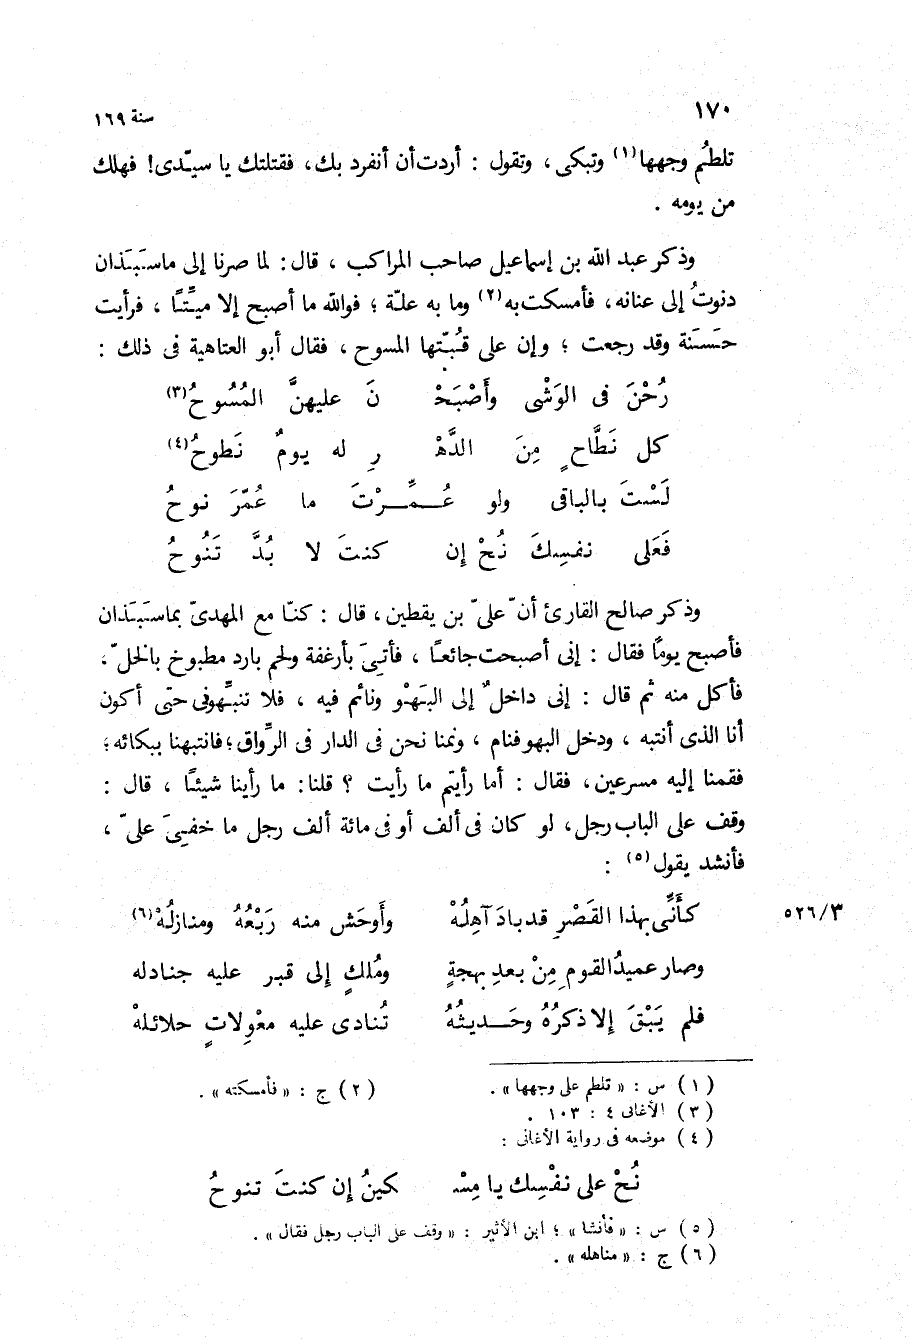 ١٧٠ سنة ١٦٩
تلطُم وجهها(١) وتبكى، وتقول : أردت أن أنفرد بك، فقتلتك يا سيّدى! فهلك
من يومه .
وذكر عبد الله بن إسماعيل صاحب المراكب ، قال : لما صرنا إلى ماسَبَذان
دنوتُ إلى عنانه، فأمسكت به(٢) وما به علّة ؛ فوالله ما أصبح إلا ميِّتًا ، فرأيت
حَسَنة وقد رجعت ؛ وإن على قُبّتها المسوح ، فقال أبو العتاهية فى ذلك :
رُحْنَ فى الوَشْى وأَصْبَحْـ ـنَ عليهنَّ المُسُوحُ(٣)
كل نَطَّاحٍ مِنَ الدَّهْـ ـرِ له يومٌ نَطوحُ(٤)
لَسْتَ بالباقى ولو عُـمِّـرْتَ ما عُمّرَ نوحُ
فَعَلى نفسِكَ نُحْ إن كنتَ لا بُدَّ تَنُوحُ
وذكر صالح القارئ أن علىّ بن يقطين، قال : كنّا مع المهدىّ بماسَبَذان
فأصبح يومًا فقال : إنى أصبحت جائعًا ، فأتِىَ بأرغفة ولحم بارد مطبوخ بالخلّ،
فأكل منه ثم قال : إنى داخلٌ إلى البَهْو ونائم فيه ، فلا تنبِّهونى حتّى أكون
أنا الذى أنتبه ، ودخل البهو فنام ، ونمنا نحن فى الدار فى الرِّواق؛ فانتبهنا ببكائه؛
فقمنا إليه مسرعين، فقال : أما رأيتم ما رأيت ؟ قلنا: ما رأينا شيئًا ، قال :
وقف على الباب رجل، لو كان فى ألف أو فى مائة ألف رجل ما خفِىَ علىّ ،
فأنشد يقول(٥) :
كأَنِّى بهذا القَصْرِ قد بادَ آهِلُهْ وأَوحَش منه رَبْعُهُ ومنازلُهْ(٦) ٥٢٦/٣
وصار عميدُ القومِ مِنْ بعدِ بهجةٍ ومُلكٍ إلى قبر عليه جنادله
فلم يَبْقَ إلا ذكرُهُ وحَـديثُهُ تُنادى عليه معْوِلاتٍ حلائلهْ
(١) س : « تلطم على وجهها » . (٢) ج : « فأمسكته » .
(٣) الأغانى ٤ : ١٠٣ .
(٤) موضعه فى رواية الأغانى :
نُحْ على نفْسِك يا مِسْـ ـكينُ إن كنتَ تنوحُ
(٥) س : « فأنشا » ؛ ابن الأثير : « وقف على الباب رجل فقال » .
(٦) ج : « مناهله » .